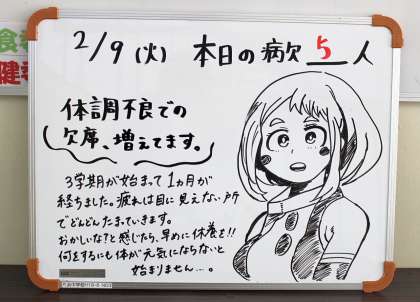 食
健
2/9(火) 本日の病欠 5 人
体調不良での
欠席、増えてます。
3学期が始まって1ヵ月が
経ちました。疲れは目に見えない所
でどんどんたまっていきます。
おかしいな?と感じたら、早めに休養を!!
何をするにも体が元気にならないと
始まりません…。